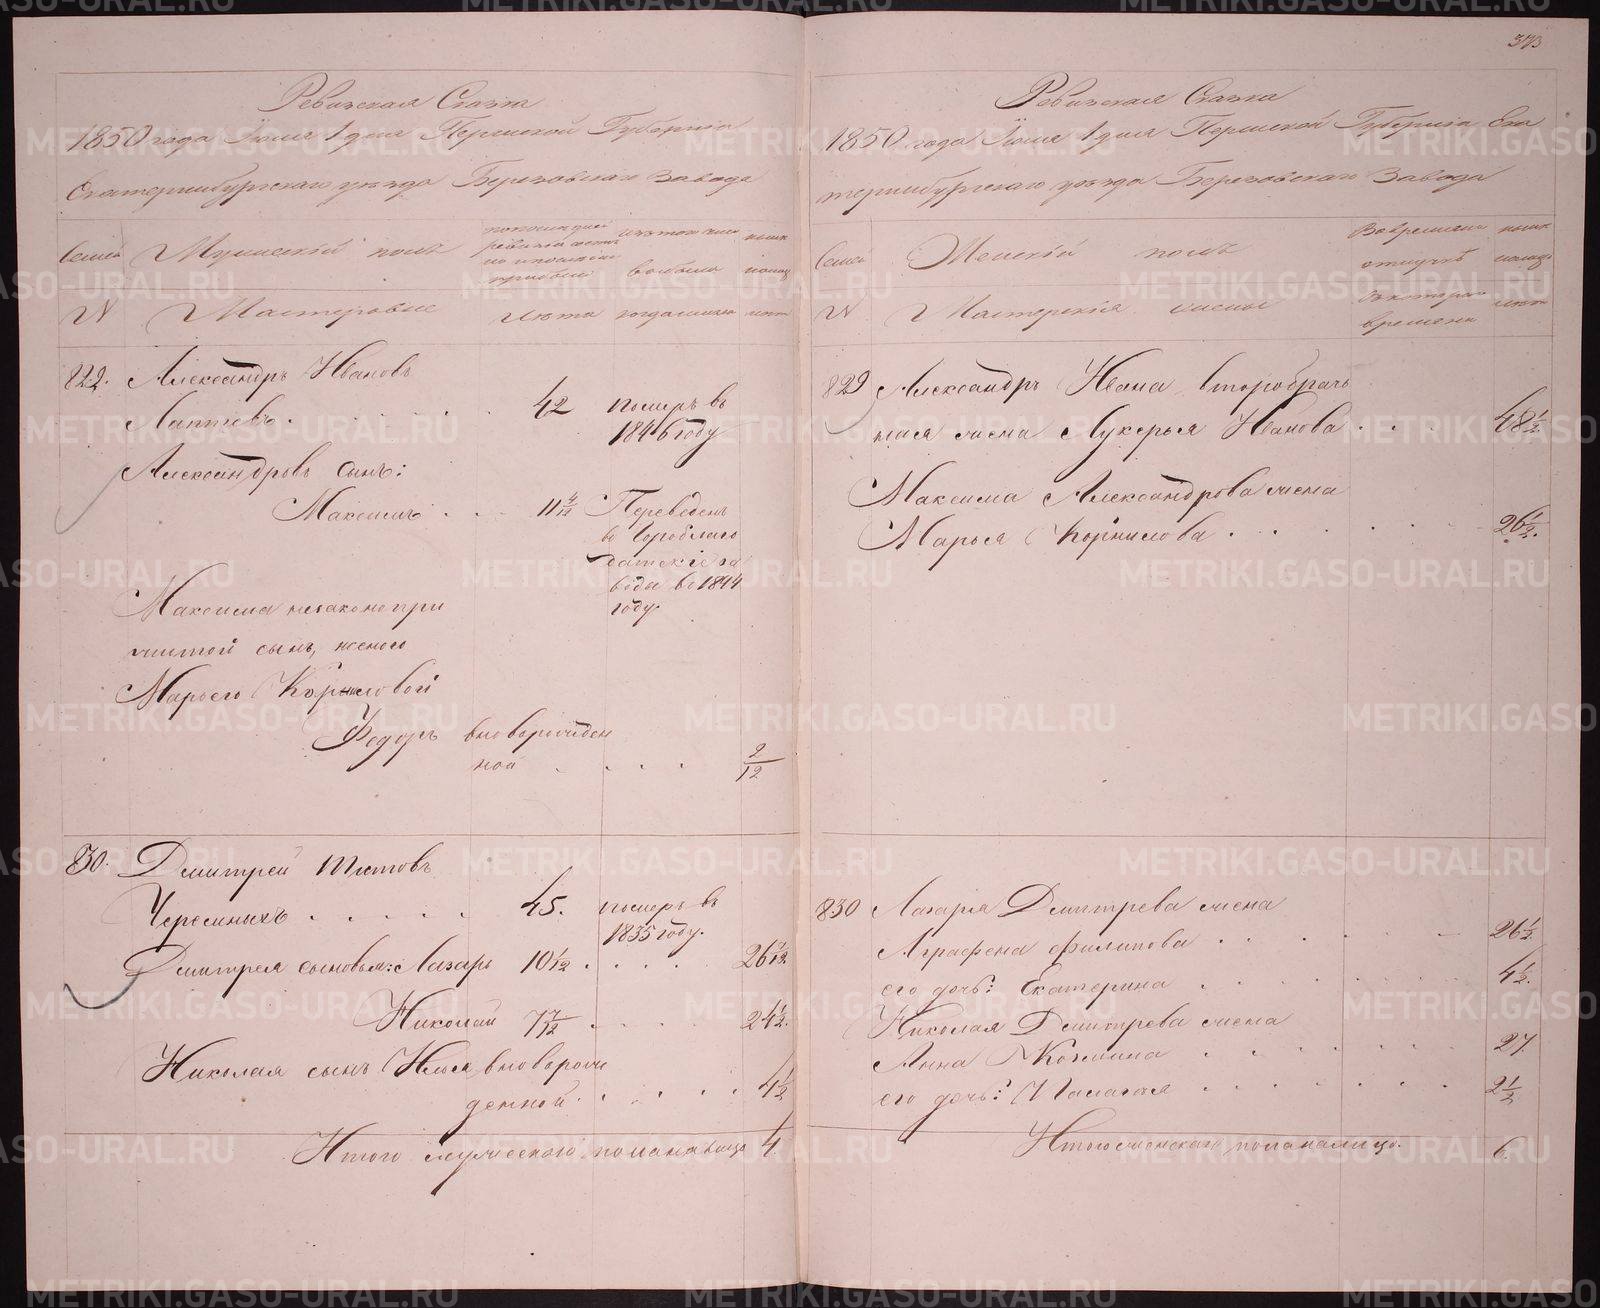 373
Ревизская Сказка
1850 года Июля 1 дня Пермской Губернiи
Екатеринбургскаго уезда Березовскаго Завода
Семей Мужеский полъ
выбыло
№ Мастеровые Лета когда именно лет
829. Александръ Ивановъ
Лаптевъ . . . . . 42 померъ въ
1846 году
Александровъ сынъ:
Максимъ . . . 11 4/12 Переведенъ
в Гороблаго
датскiе за
вода во 1844
году.
Максима незаконопри
житой сынъ, женою
Марьею Корниловой
Федоръ вноворожден
ной . . . . 2/12
830. Дмитрей Титовъ
Черемныхъ . . . . . 45. померъ въ
1835 году.
Дмитрея сыновья: Лазарь 10 1/2 . . . . 26 7/12
Николай 7 7/12 . . . . 24 1/2.
Николая сынъ Илья вноворож
денной . . . . . 4 1/2
Итого мужескаго пола на лицо 4.
Ревизская Сказка
1850 года Июля 1 дня Пермской Губернiи Ека
теринбургскаго уезда Березовскаго Завода
Семей Женскiй полъ Во временной
отлучке
№ Мастерскiя жены съ котораго
времени лет
829 Александръ Ивана второбрач
ная жена Лукерья Иванова . . . 48 1/2
Максима Александрова жена
Марья Корнилова . . . . . 26 1/2.
830 Лазаря Дмитрева жена
Аграфена Филипова . . . . . 26 1/2
его дочь: Екатерина . . . . . 4 1/2.
Николая Дмитрева жена
Анна Козмина . . . . . . 27.
его дочь: Палагея . . . . . . 2 1/2
Итого женскаго пола на лицо. 6.
METRIKI.GASO-URAL.RU